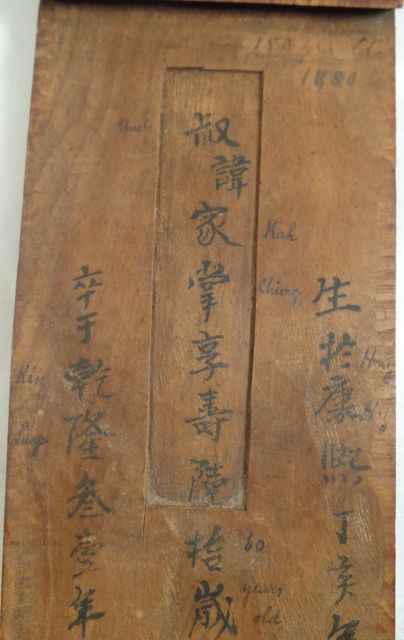 生於康熙丁亥年
叔諱家掌享壽陸拾歲
卒于乾隆叁壹年
1880
Uncle
Kah
Chiong
Kin
Lung
60
years
old